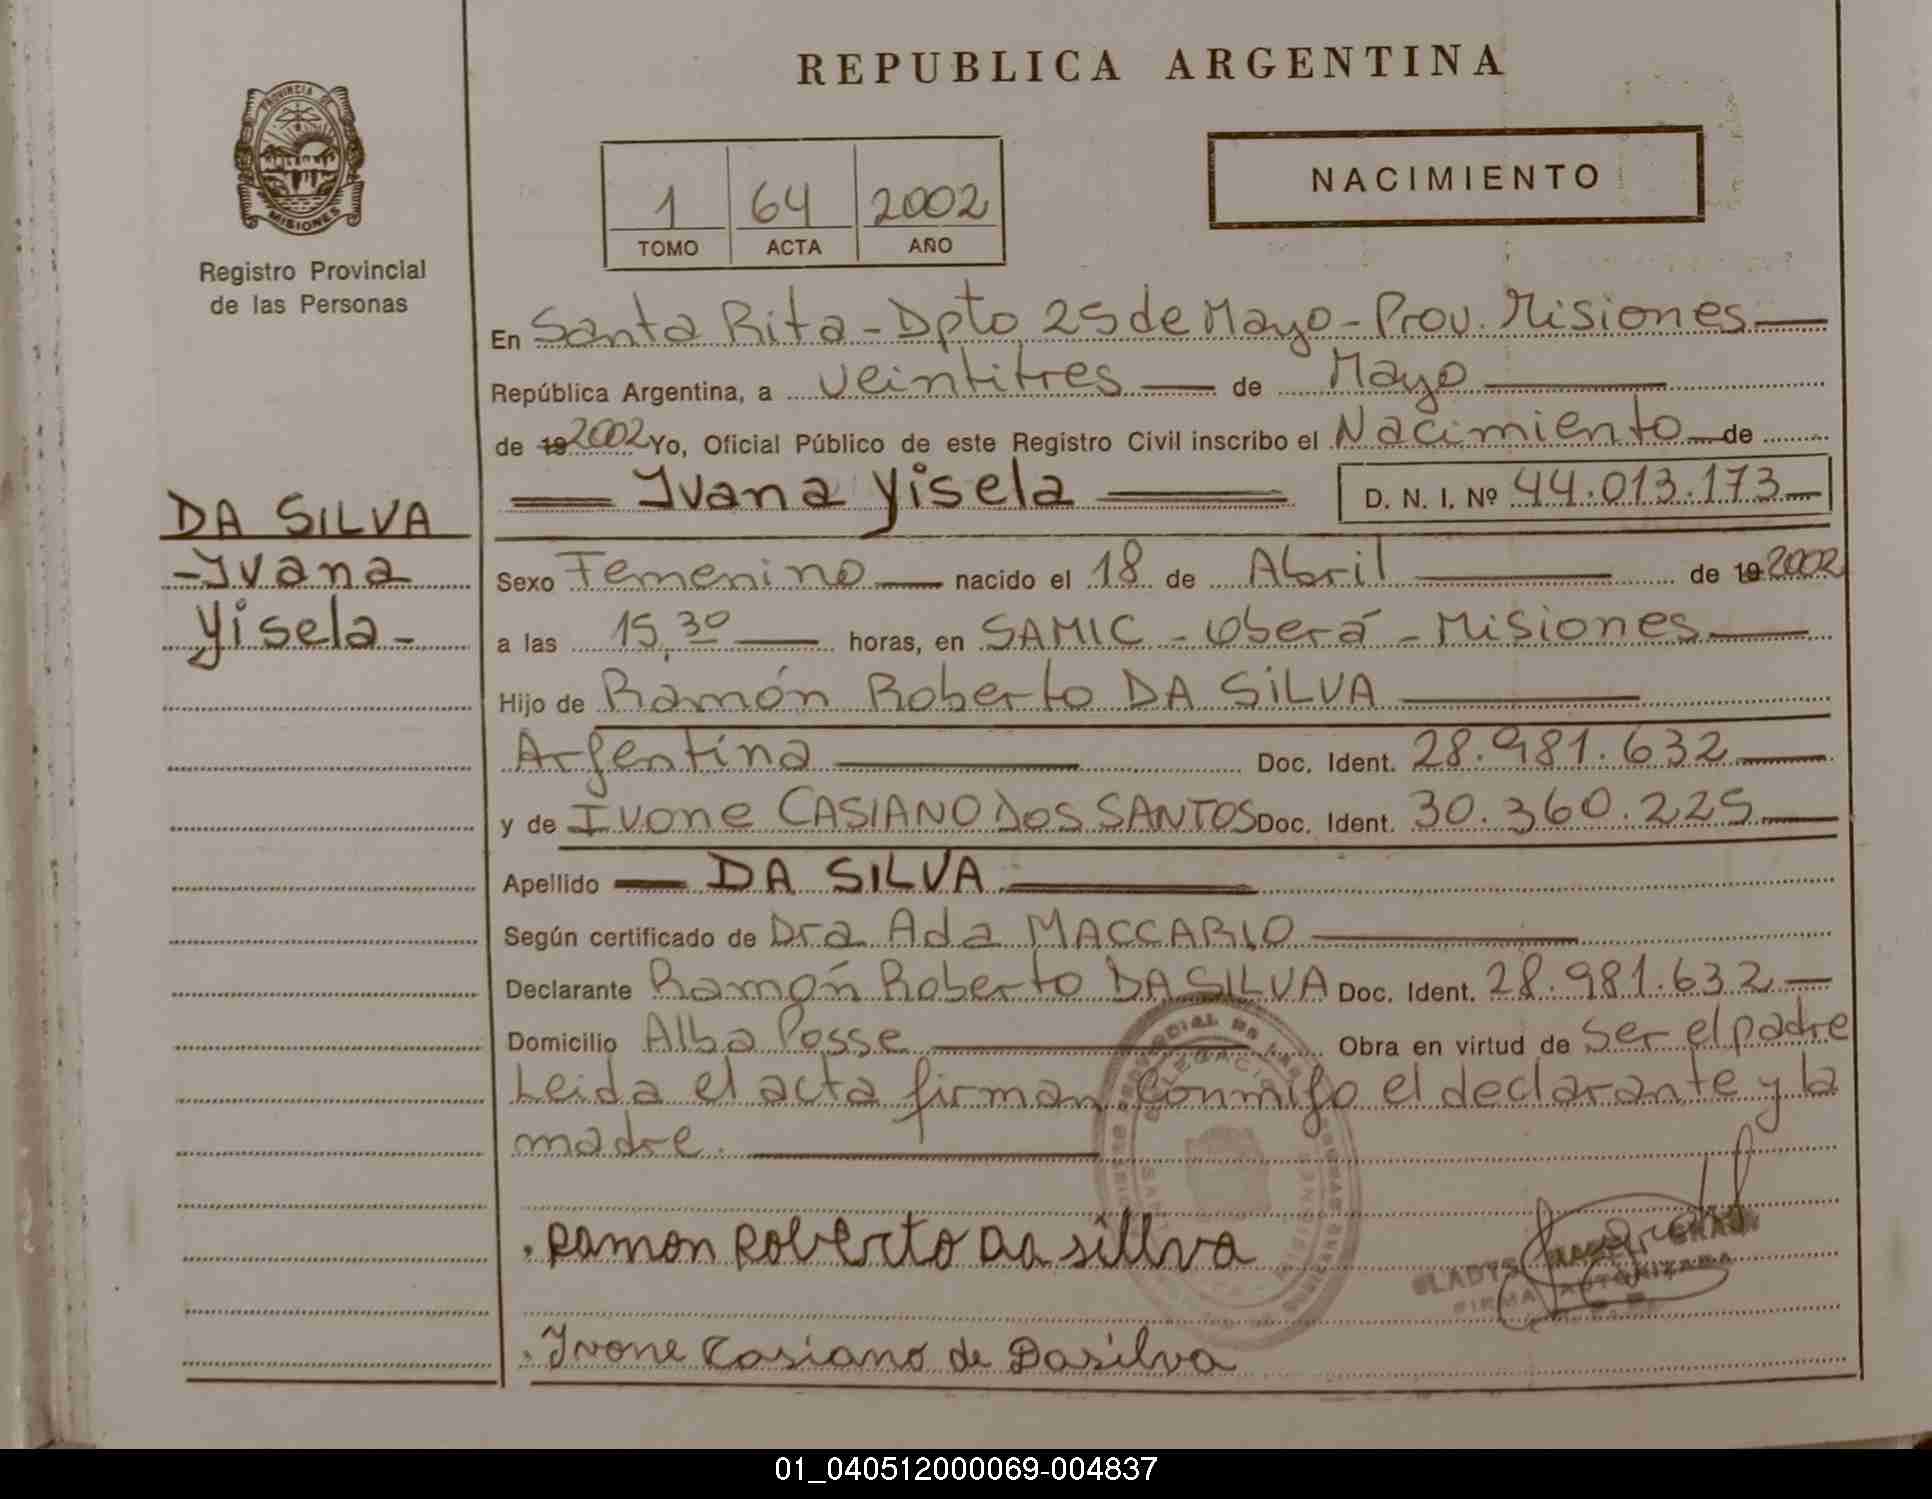 REPUBLICA ARGENTINA
PROVINCIA DE
MISIONES
Registro Provincial
de las Personas
1 64 2002
TOMO ACTA AÑO
NACIMIENTO
En Santa Rita - Dpto 25 de Mayo - Prov. Misiones
República Argentina, a veintitres de Mayo
de 19 2002 Yo, Oficial Público de este Registro Civil inscribo el Nacimiento de
Ivana Yisela D. N. I. Nº 44.013.173
DA SILVA
- Ivana
Yisela -
Sexo Femenino nacido el 18 de Abril de 19 2002
a las 15,30 horas, en SAMIC - Oberá - Misiones
Hijo de Ramón Roberto DA SILVA
Argentina Doc. Ident. 28.981.632
y de Ivone CASIANO DOS SANTOS Doc. Ident. 30.360.225
Apellido DA SILVA
Según certificado de Dra Ada MACCARIO
Declarante Ramón Roberto DA SILVA Doc. Ident. 28.981.632
Domicilio Alba Posse Obra en virtud de ser el padre
Leida el acta firman conmigo el declarante y la
madre.
Ramon Roberto Da sillva
GLADYS
FIRMA AUTORIZADA
Ivone Casiano de Dasilva
01_040512000069-004837